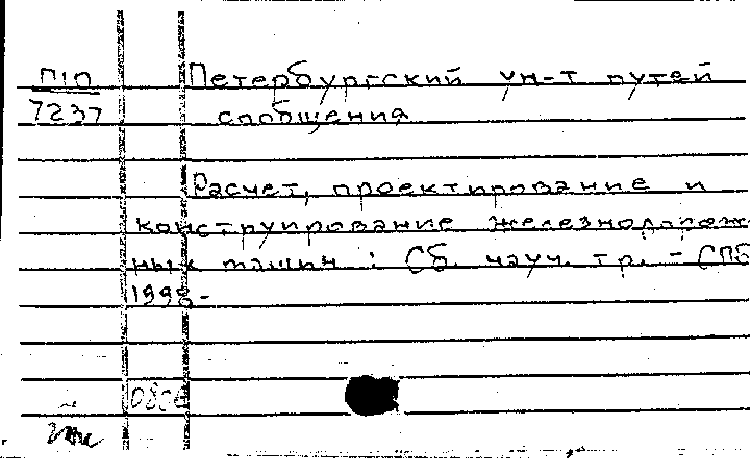 П10 Петербургский ун-т путей
7237 сообщения
Расчет, проектирование и
конструирование железнодорож-
ных машин : Сб. науч. тр. - СПб
1998-